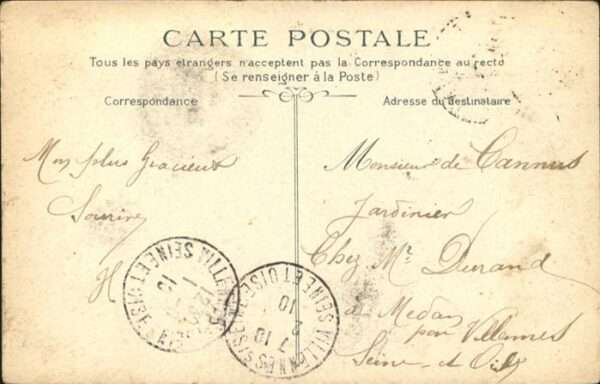 CARTE POSTALE
Tous les pays étrangers n'acceptent pas la Correspondance au recto
(Se renseigner à la Poste)
Correspondance
Adresse du destinataire
Mon plus Gracieux
Sourire
H
Monsieur de Cannus
Jardinier
Chez Mr Durand
à Medan
par Villennes
Seine-et-Oise
SEINE ET OISE
VILLENNES S/ SEINE
SEINE ET OISE
10
2
7 10